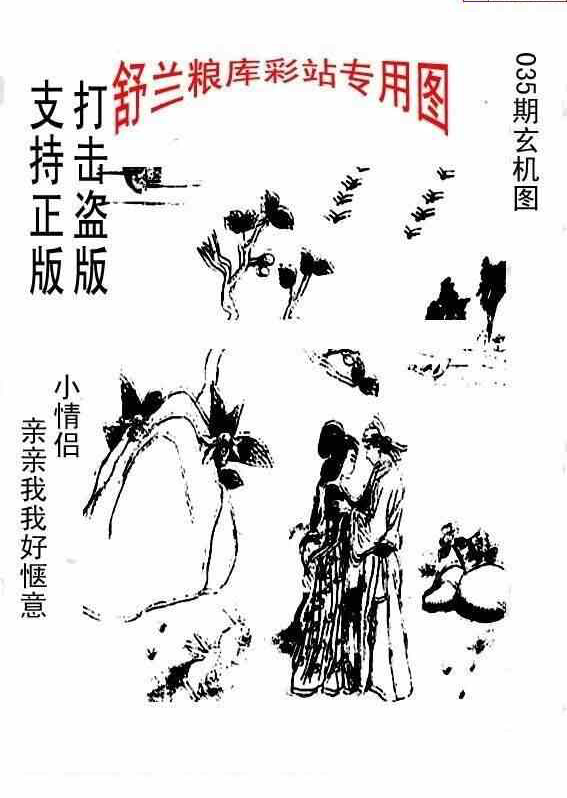 舒兰粮库彩站专用图
035期玄机图
打击盗版
支持正版
小情侣
亲亲我我好惬意